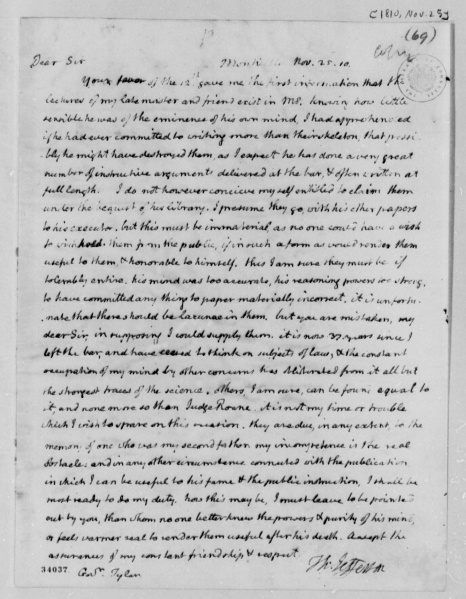 [1810, Nov. 25]
(69)
Dear Sir
Monticello Nov. 25. 10.
Your favor of the 12th gave me the first information that the
lectures of my late master and friend exist in MS. knowing how little
sensible he was of the eminence of his own mind, I had apprehended
if he had ever committed to writing more than their skeleton, that possi-
bly he might have destroyed them, as I expect he has done a very great
number of instructive arguments delivered at the bar, & often written at
full length. I do not however concieve myself entitled to claim them
under the bequest of his library. I presume they go, with his other papers
to his executor. but this must be immaterial, as no one could have a wish
to withhold them from the public, if in such a form as would render them
useful to them, & honorable to himself. this I am sure they must be if
tolerably entire. his mind was too accurate, his reasoning powers too strong,
to have committed any thing to paper materially incorrect. it is unfortu-
nate that there should be lacunae in them. but you are mistaken, my
dear Sir, in supposing I could supply them. it is now 37. years since I
left the bar, and have ceased to think on subjects of law, & the constant
occupation of my mind by other concerns has obliterated from it all but
the strongest traces of the science. others, I am sure, can be found equal to
it, and none more so than Judge Roane. it is not my time or trouble
which I wish to spare on this occasion. they are due, in any extent, to the
memory of one who was my second father. my incompetence is the real
obstacle; and in any other circumstance connected with the publication
in which I can be useful to his fame & the public instruction, I shall be
most ready to do my duty. how this may be, I must leave to be pointed
out by you, than whom no one better knew the powers & purity of his mind,
or feels warmer zeal to render them useful after his death. Accept the
assurances of my constant friendship & respect.
Th: Jefferson
34037
Govr. Tyler